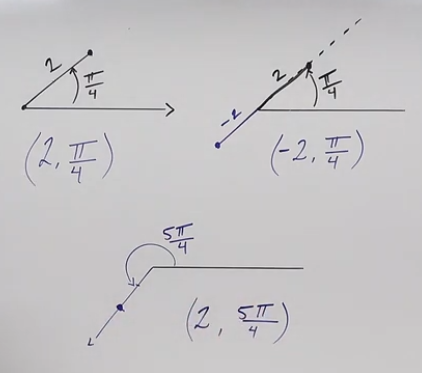 2
π/4
(2, π/4)
2
π/4
-2
(-2, π/4)
5π/4
(2, 5π/4)